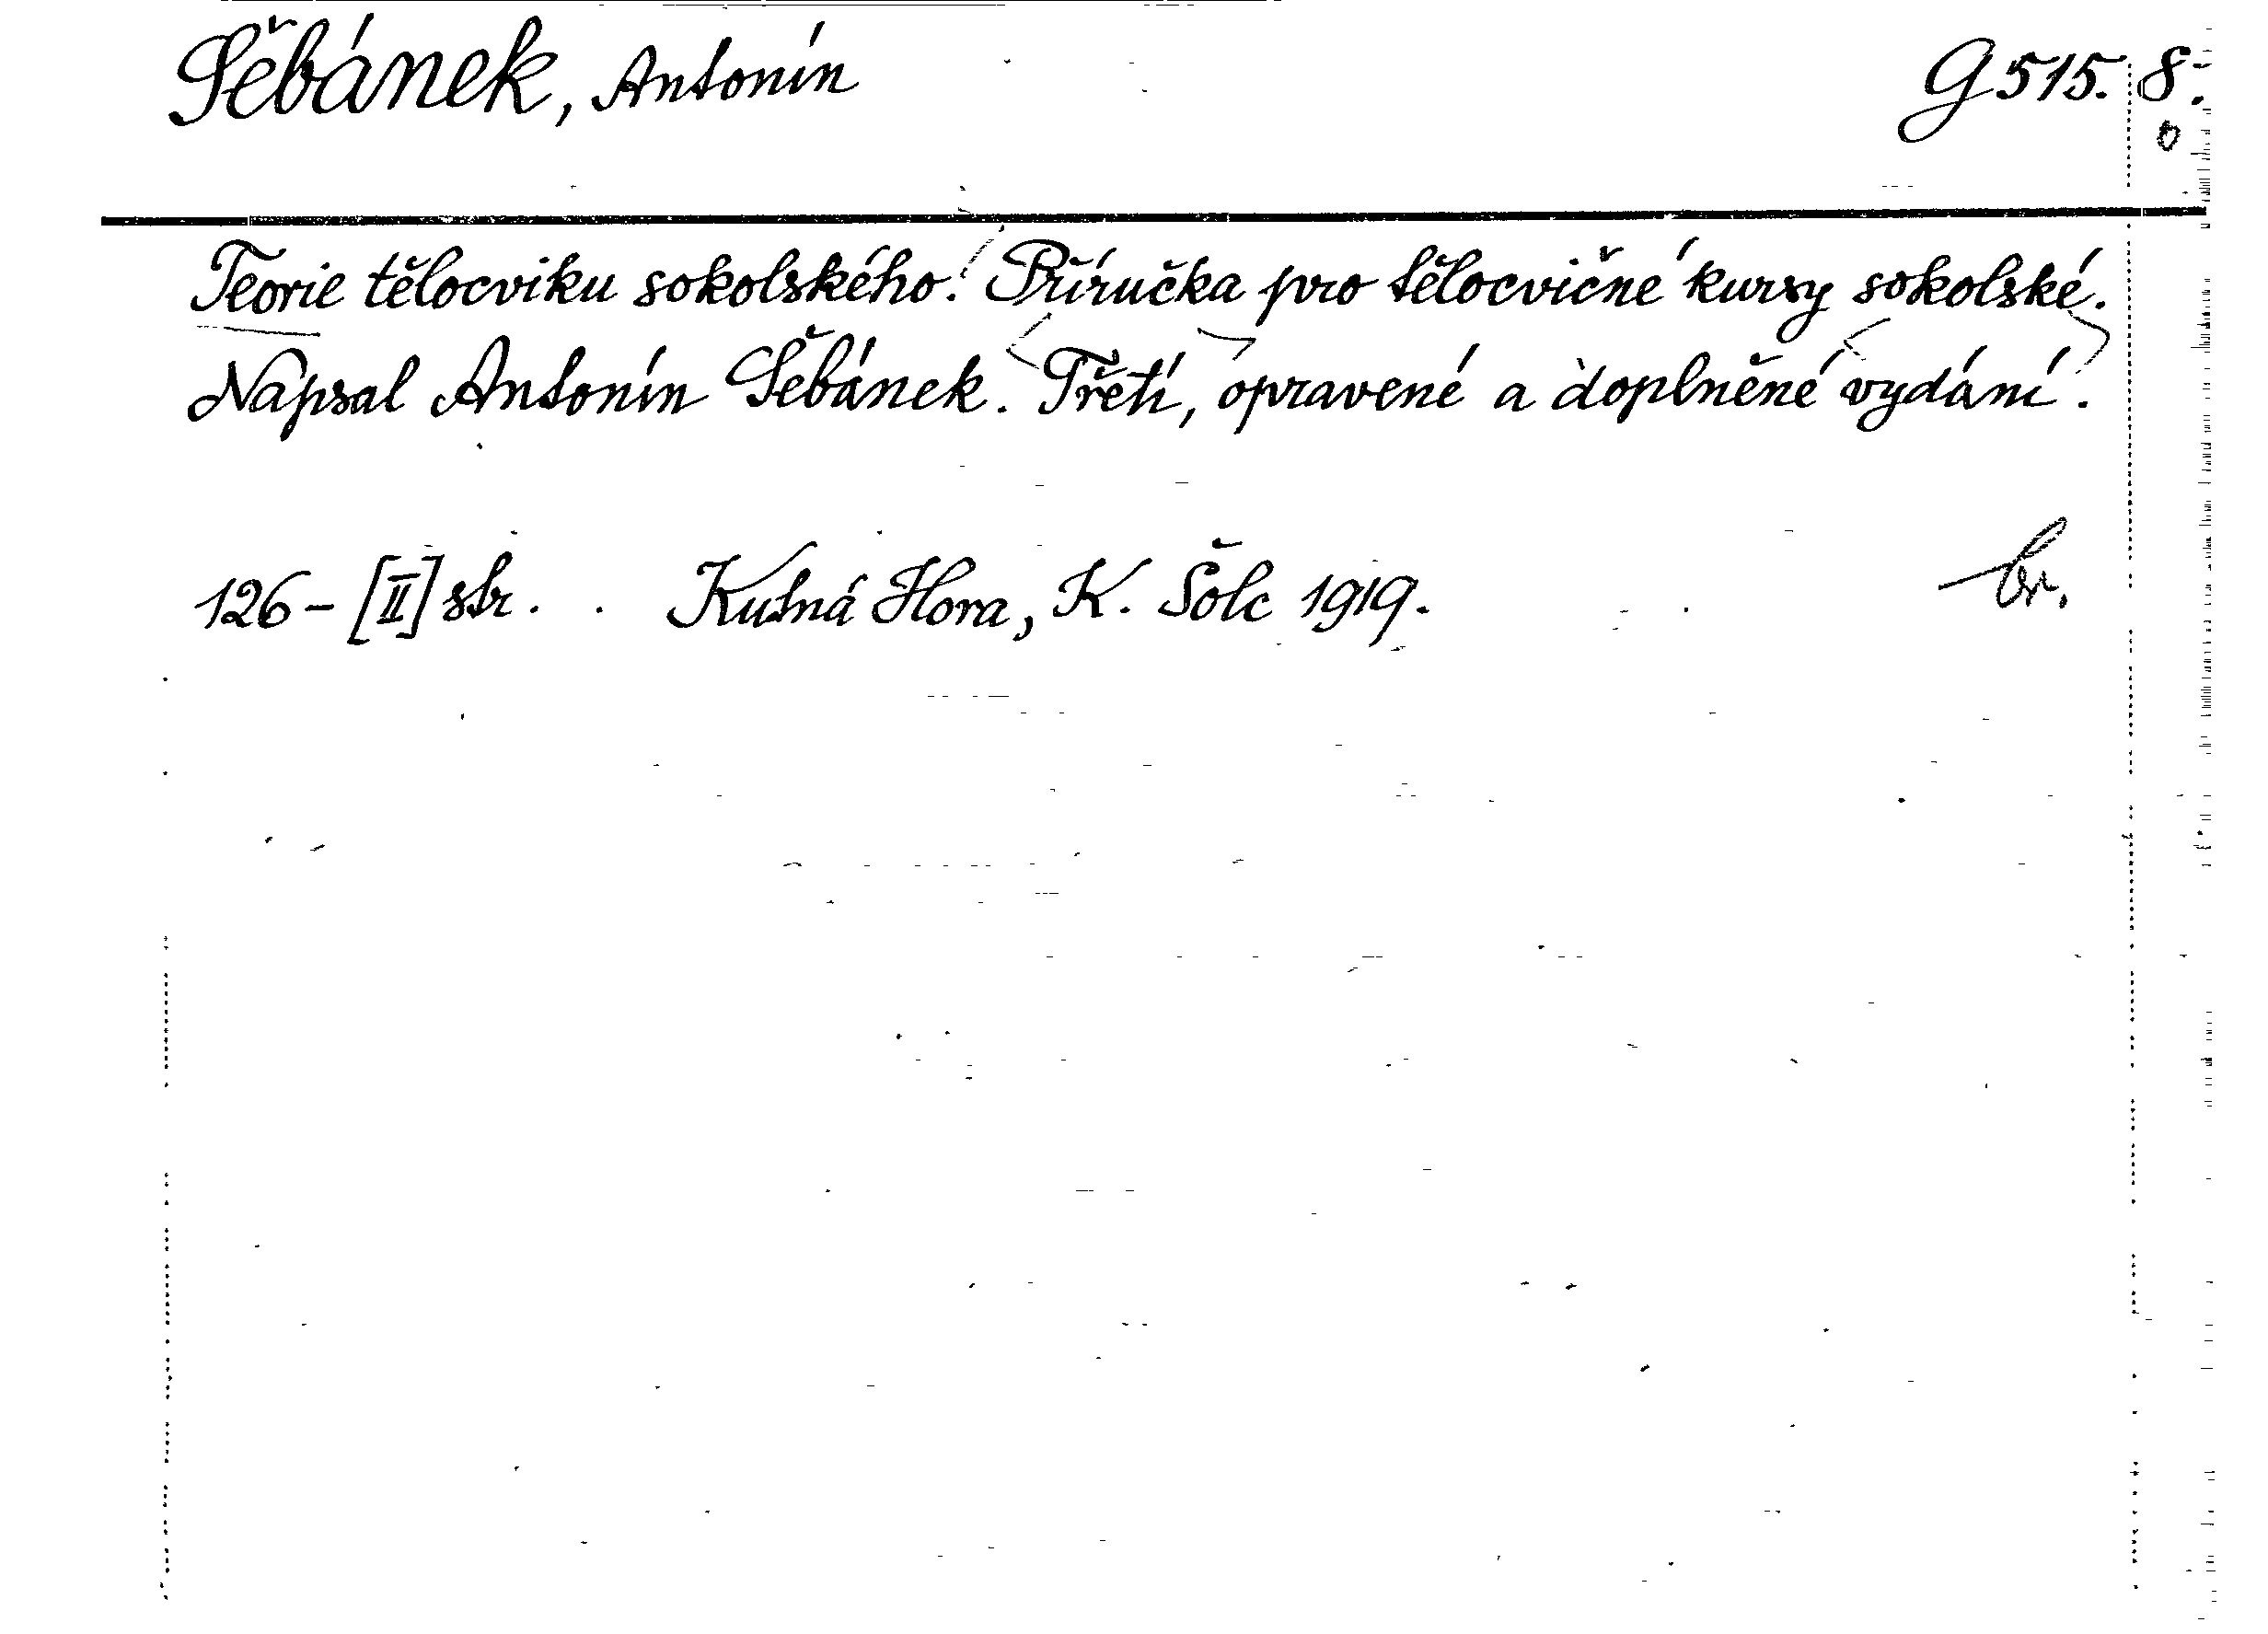 Šebánek, Antonín G 515. 8.
o
Teorie tělocviku sokolského. Příručka pro tělocvičné kursy sokolské.
Napsal Antonín Šebánek. Třetí, opravené a doplněné vydání.
126 – [II] str. Kutná Hora, K. Šolc 1919. br.